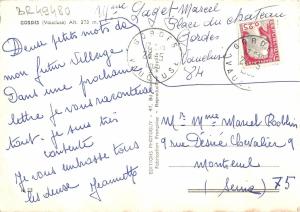 GORDES (Vaucluse) Alt. 373 m.
Gaget Marcel
Place du chateau
Gordes
Vaucluse
84
Deux petits mots de
mon futur village.
Dans une prochaine
lettre je vous raconterai
tout - je suis très
contente
Je vous embrasse tous
les deux Jeannette
M. Mme Marcel Robbin
9 Rue Désiré Chevalier 9
Montreuil
(Seine) 75